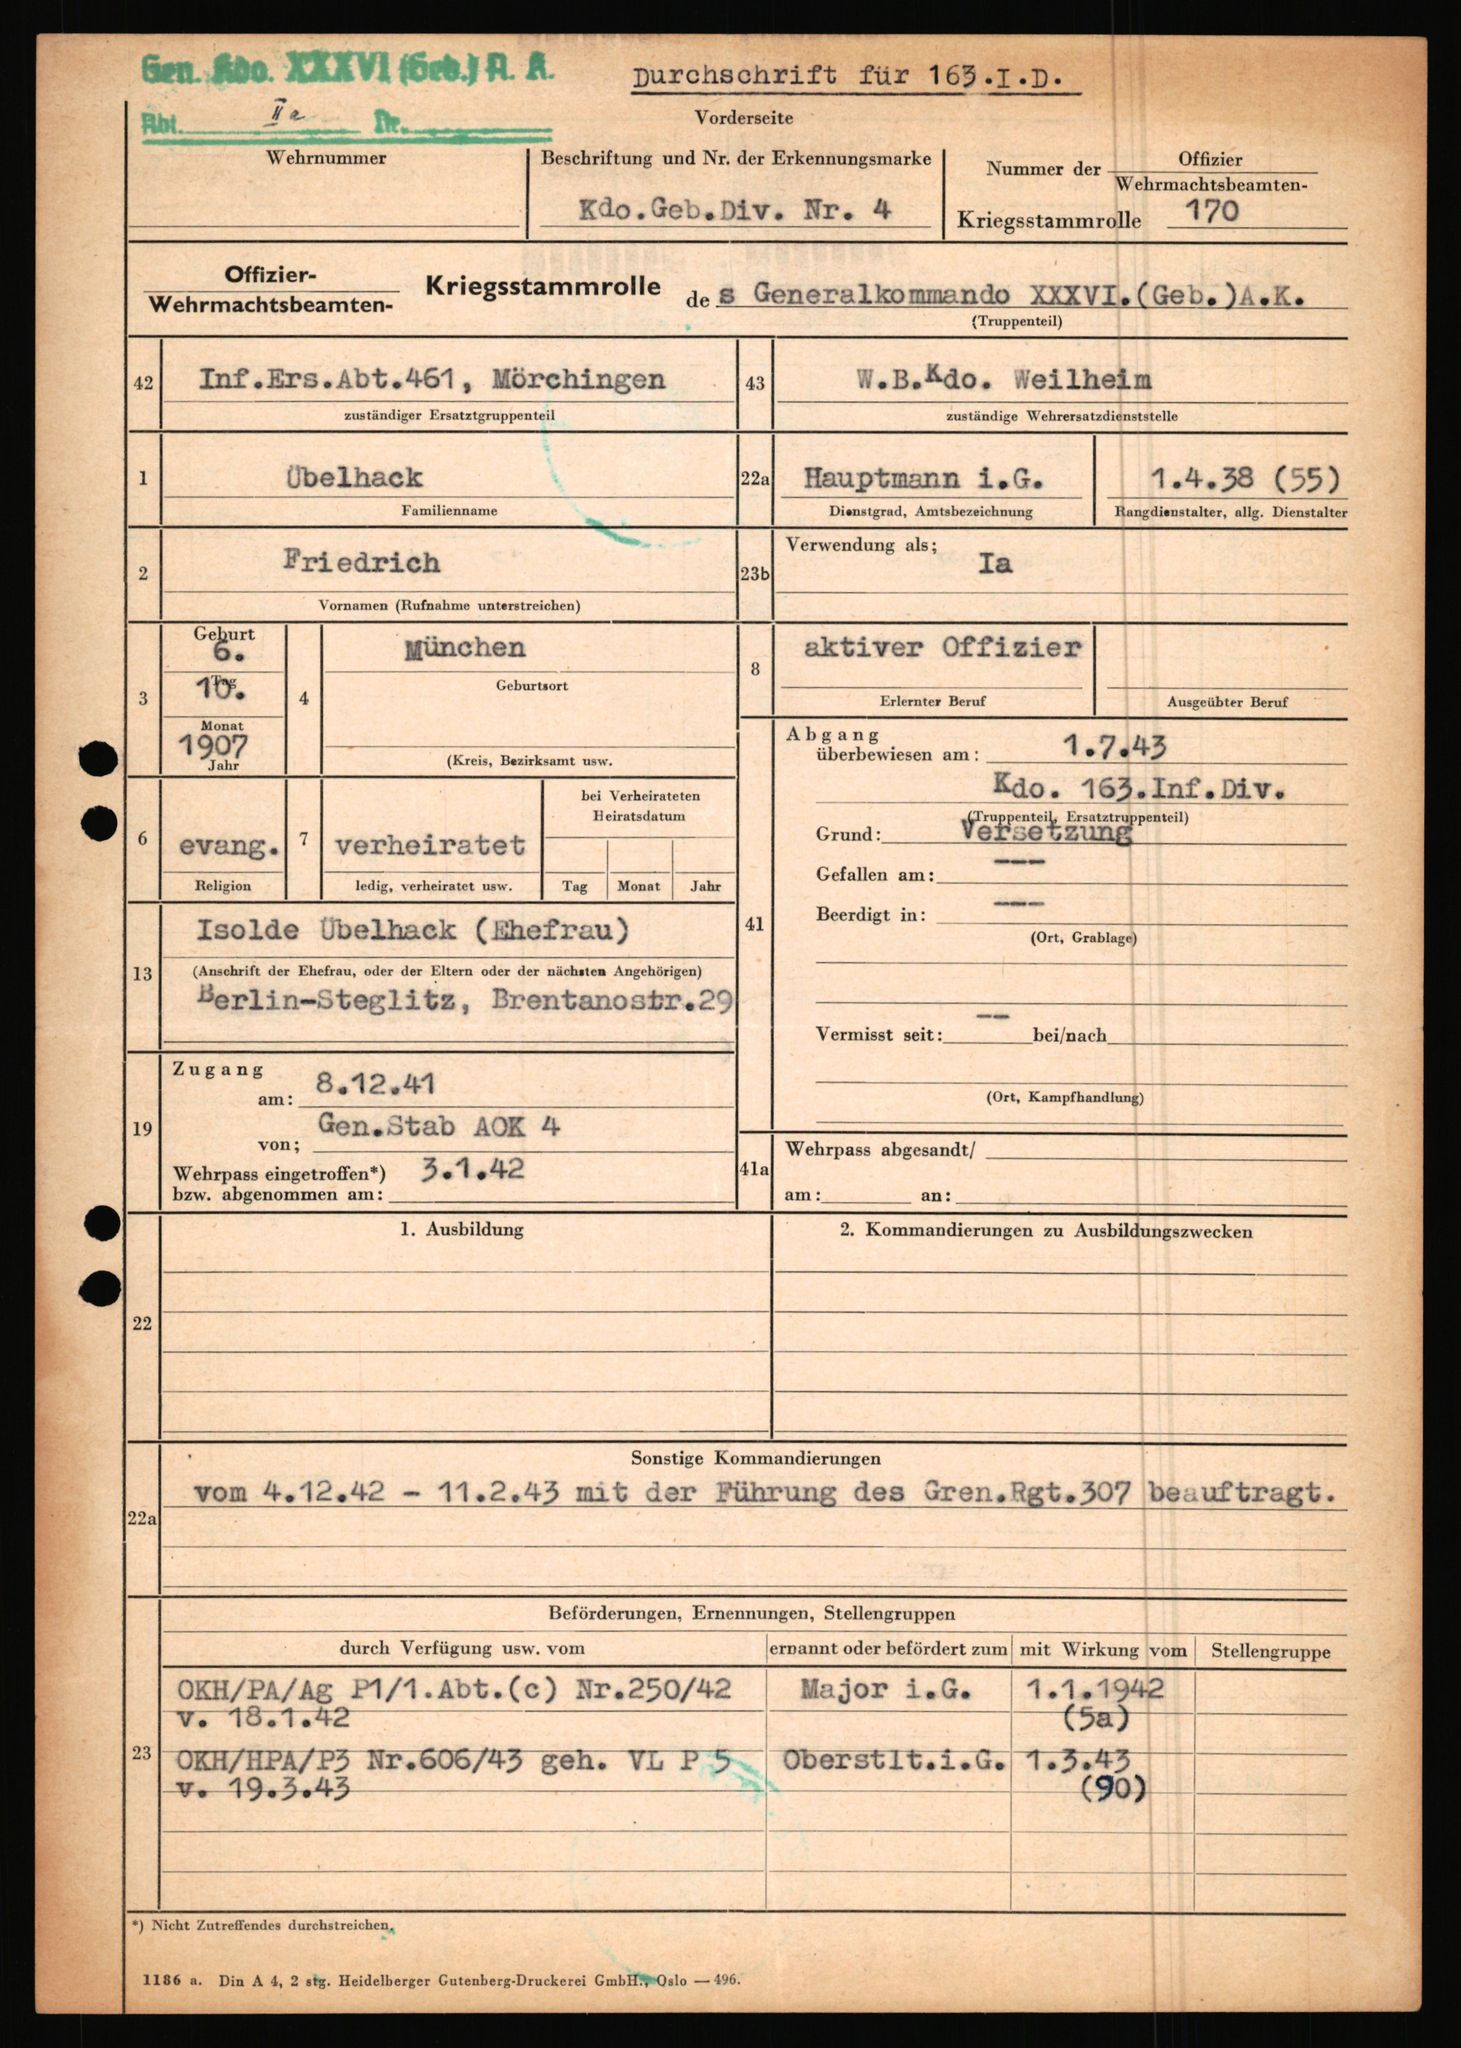 Gen. Kdo. XXXVI (Geb.) A. K.
Durchschrift für 163.I.D.
Abt. IIa Nr.
Vorderseite
Wehrnummer
Beschriftung und Nr. der Erkennungsmarke
Kdo.Geb.Div. Nr. 4
Nummer der Offizier
Wehrmachtsbeamten-
Kriegsstammrolle 170
Offizier-
Wehrmachtsbeamten-
Kriegsstammrolle des Generalkommando XXXVI.(Geb.)A.K.
(Truppenteil)
42 Inf.Ers.Abt.461, Mörchingen
zuständiger Ersatztgruppenteil
43 W.B.Kdo. Weilheim
zuständige Wehrersatzdienststelle
1 Übelhack
Familienname
22a Hauptmann i.G.
Dienstgrad, Amtsbezeichnung
1.4.38 (55)
Rangdienstalter, allg. Dienstalter
2 Friedrich
Vornamen (Rufnahme unterstreichen)
23b Verwendung als;
Ia
3 Geburt
6.
Tag
10.
Monat
1907
Jahr
4 München
Geburtsort
(Kreis, Bezirksamt usw.
8 aktiver Offizier
Erlernter Beruf
Ausgeübter Beruf
41 Abgang
überbewiesen am: 1.7.43
Kdo. 163.Inf.Div.
(Truppenteil, Ersatztruppenteil)
Grund: Versetzung
Gefallen am: ---
Beerdigt in: ---
(Ort, Grablage)
Vermisst seit: -- bei/nach
(Ort, Kampfhandlung)
6 evang.
Religion
7 verheiratet
ledig, verheiratet usw.
bei Verheirateten
Heiratsdatum
Tag Monat Jahr
13 Isolde Übelhack (Ehefrau)
(Anschrift der Ehefrau, oder der Eltern oder der nächsten Angehörigen)
Berlin-Steglitz, Brentanostr.29
19 Zugang
am: 8.12.41
von; Gen.Stab AOK 4
Wehrpass eingetroffen*) 3.1.42
bzw. abgenommen am:
41a Wehrpass abgesandt/
am: an:
22 1. Ausbildung
2. Kommandierungen zu Ausbildungszwecken
22a Sonstige Kommandierungen
vom 4.12.42 - 11.2.43 mit der Führung des Gren.Rgt.307 beauftragt.
23 Beförderungen, Ernennungen, Stellengruppen
durch Verfügung usw. vom
ernannt oder befördert zum
mit Wirkung vom
Stellengruppe
OKH/PA/Ag P1/1.Abt.(c) Nr.250/42 Major i.G. 1.1.1942
v. 18.1.42 (5a)
OKH/HPA/P3 Nr.606/43 geh. VL P 5 Oberstlt.i.G. 1.3.43
v. 19.3.43 (90)
*) Nicht Zutreffendes durchstreichen.
1186 a. Din A 4, 2 stg. Heidelberger Gutenberg-Druckerei GmbH., Oslo — 496.